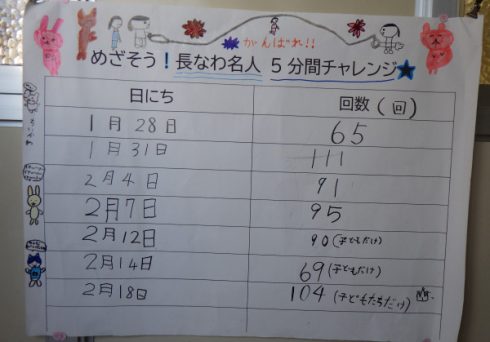 がんばれ!!
めざそう!長なわ名人 5分間チャレンジ★
日にち 回数(回)
1月28日 65
1月31日 111
2月4日 91
2月7日 95
2月12日 90(子どもだけ)
2月14日 69(子どもだけ)
2月18日 104(子どもたちだけ)